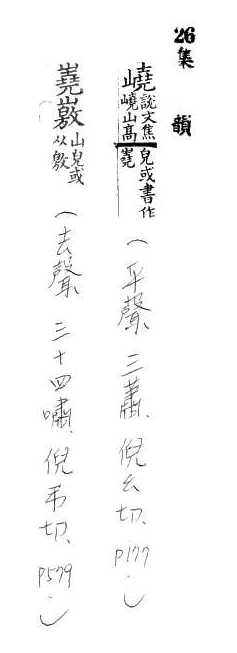 26集韻
嶢說文焦嶢山高皃或書作嶤(平聲、三蕭、倪幺切、P177.)
嶤嶅山皃或从敫(去聲、三十四嘯、倪弔切、P579.)